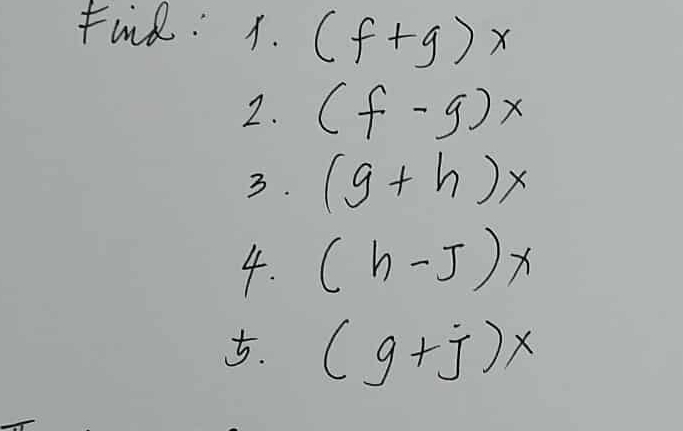 Find: 1. (f+g)x
2. (f-g)x
3. (g+h)x
4. (h-J)x
5. (g+j)x